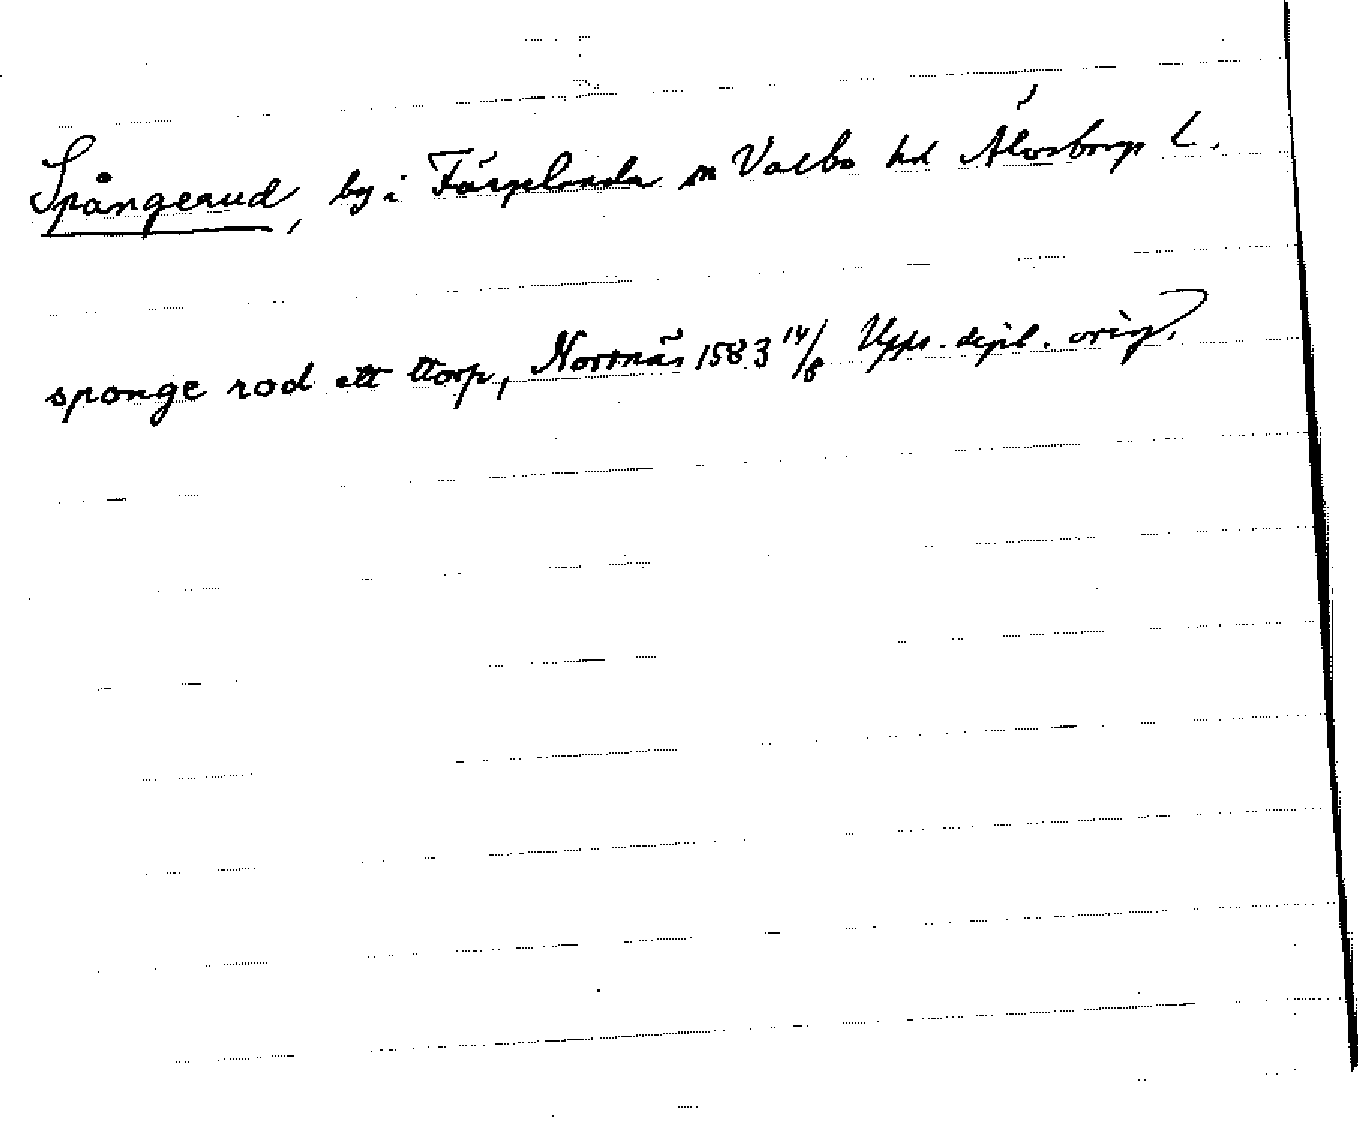 Spångerud, by i Färgelanda sn Valbo hd Älvsborgs L.
sponge rod ett torp, Nornäs 1583 14/8 Upps. dipl. orig.